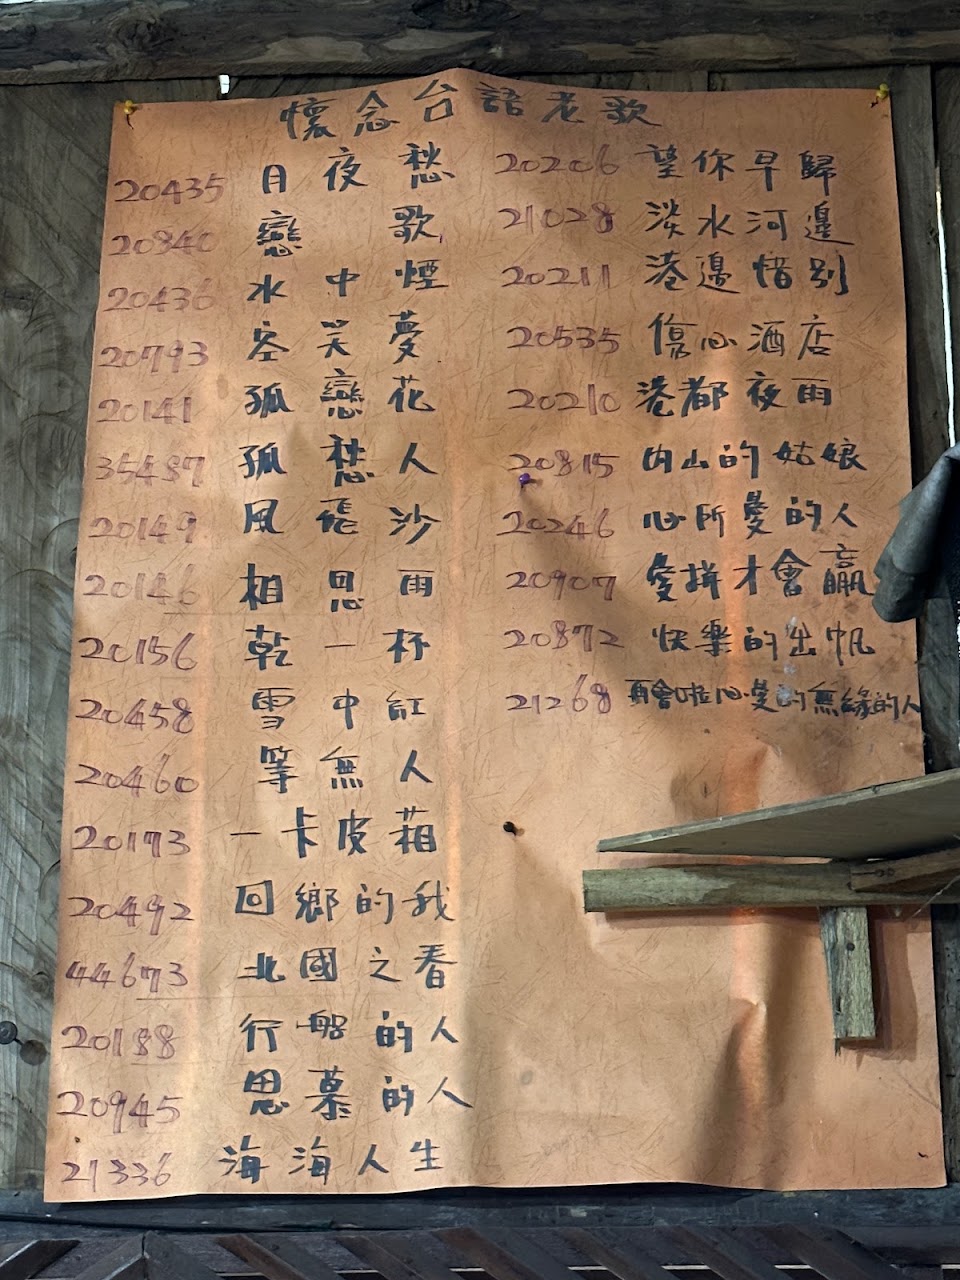 懷念台語老歌
20435 月夜愁
20840 戀歌
20436 水中煙
20793 空笑夢
20141 孤戀花
35487 孤愁人
20149 風飛沙
20146 相思雨
20156 乾一杯
20458 雪中紅
20460 等無人
20173 一卡皮箱
20492 回鄉的我
44673 北國之春
20188 行船的人
20945 思慕的人
21336 海海人生
20206 望你早歸
21028 淡水河邊
20211 港邊惜別
20535 傷心酒店
20210 港都夜雨
20815 內山的姑娘
20246 心所愛的人
20907 愛拼才會贏
20872 快樂的出帆
21268 再會啦心愛的無緣的人